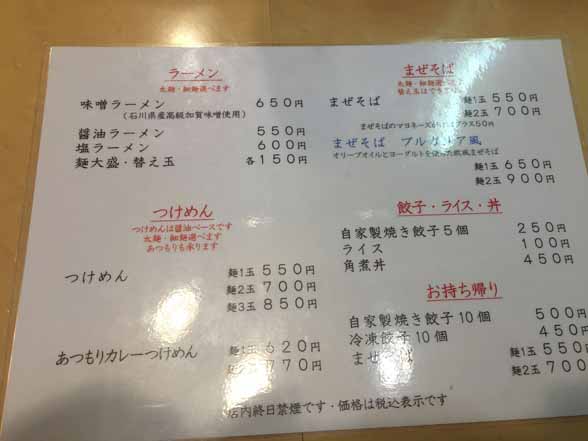 ラーメン
太麺・細麺選べます
味噌ラーメン 650円
(石川県産高級加賀味噌使用)
醤油ラーメン 550円
塩ラーメン 600円
麺大盛・替え玉 各150円
つけめん
つけめんは醤油ベースです
太麺・細麺選べます
あつもりも承ります
つけめん 麺1玉 550円
麺2玉 700円
麺3玉 850円
あつもりカレーつけめん 麺1玉 620円
770円
まぜそば
太麺・細麺選べ
替え玉はでき
まぜそば 麺1玉 550円
麺2玉 700円
まぜそばのマヨネーズ プラス50円
まぜそば ブルガリア風
オリーブオイルとヨーグルトを使った欧風まぜそば
麺1玉 650円
麺2玉 900円
餃子・ライス・丼
自家製焼き餃子5個 250円
ライス 100円
角煮丼 450円
お持ち帰り
自家製焼き餃子10個 500円
冷凍餃子10個 450円
まぜそば 麺1玉 550
麺2玉 700
店内終日禁煙です・価格は税込表示です